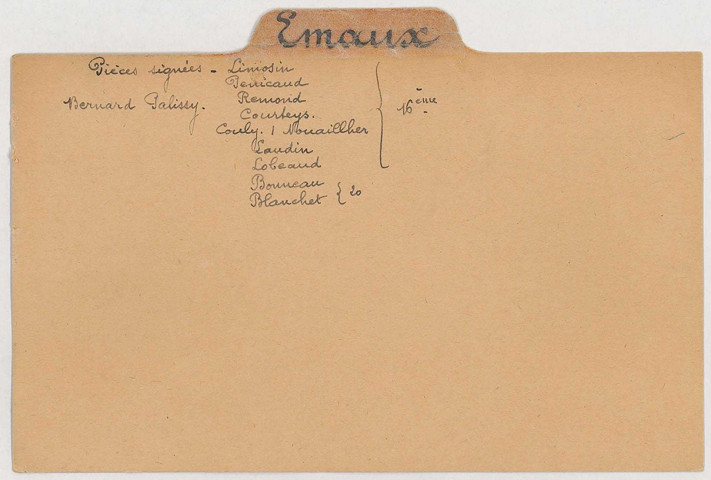 Emaux
Pièces signées - Limosin
Penicaud
Bernard Palissy. Remond
Courteys.
Couly. / Nouaillher
Laudin
Lobeaud
16ème
Bonneau
Blanchet
20